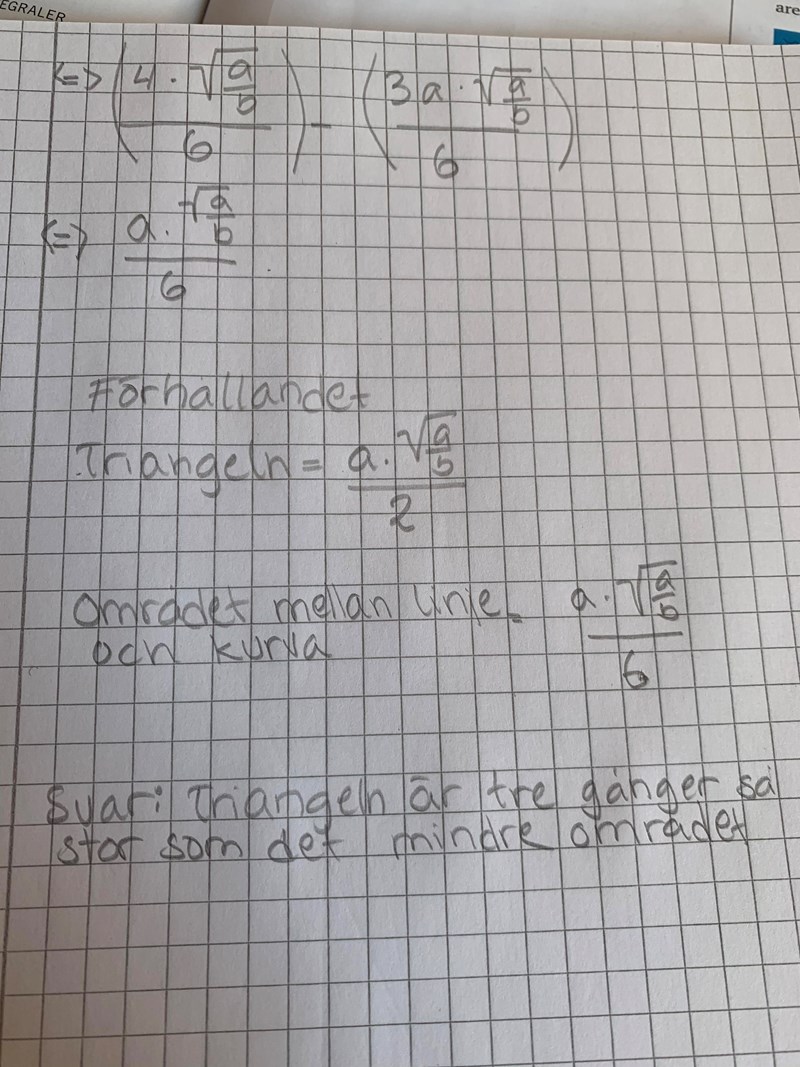 EGRALER
are
<=> (4 · √(a/b) / 6) - (3a · √(a/b) / 6)
<=> a · √(a/b) / 6
Förhållandet
Triangeln = a · √(a/b) / 2
området mellan linje a · √(a/b) / 6
och kurva
Svar: Triangeln är tre gånger så
stor som det mindre området